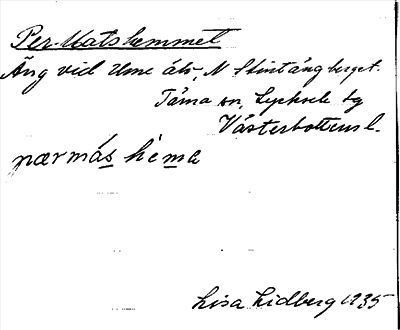 Per-Matshemmet
Äng vid Ume älv, N Stintångberget.
Tärna sn, Lycksele tg
Västerbottens l.
pærmás hèma
Lisa Lidberg 1935